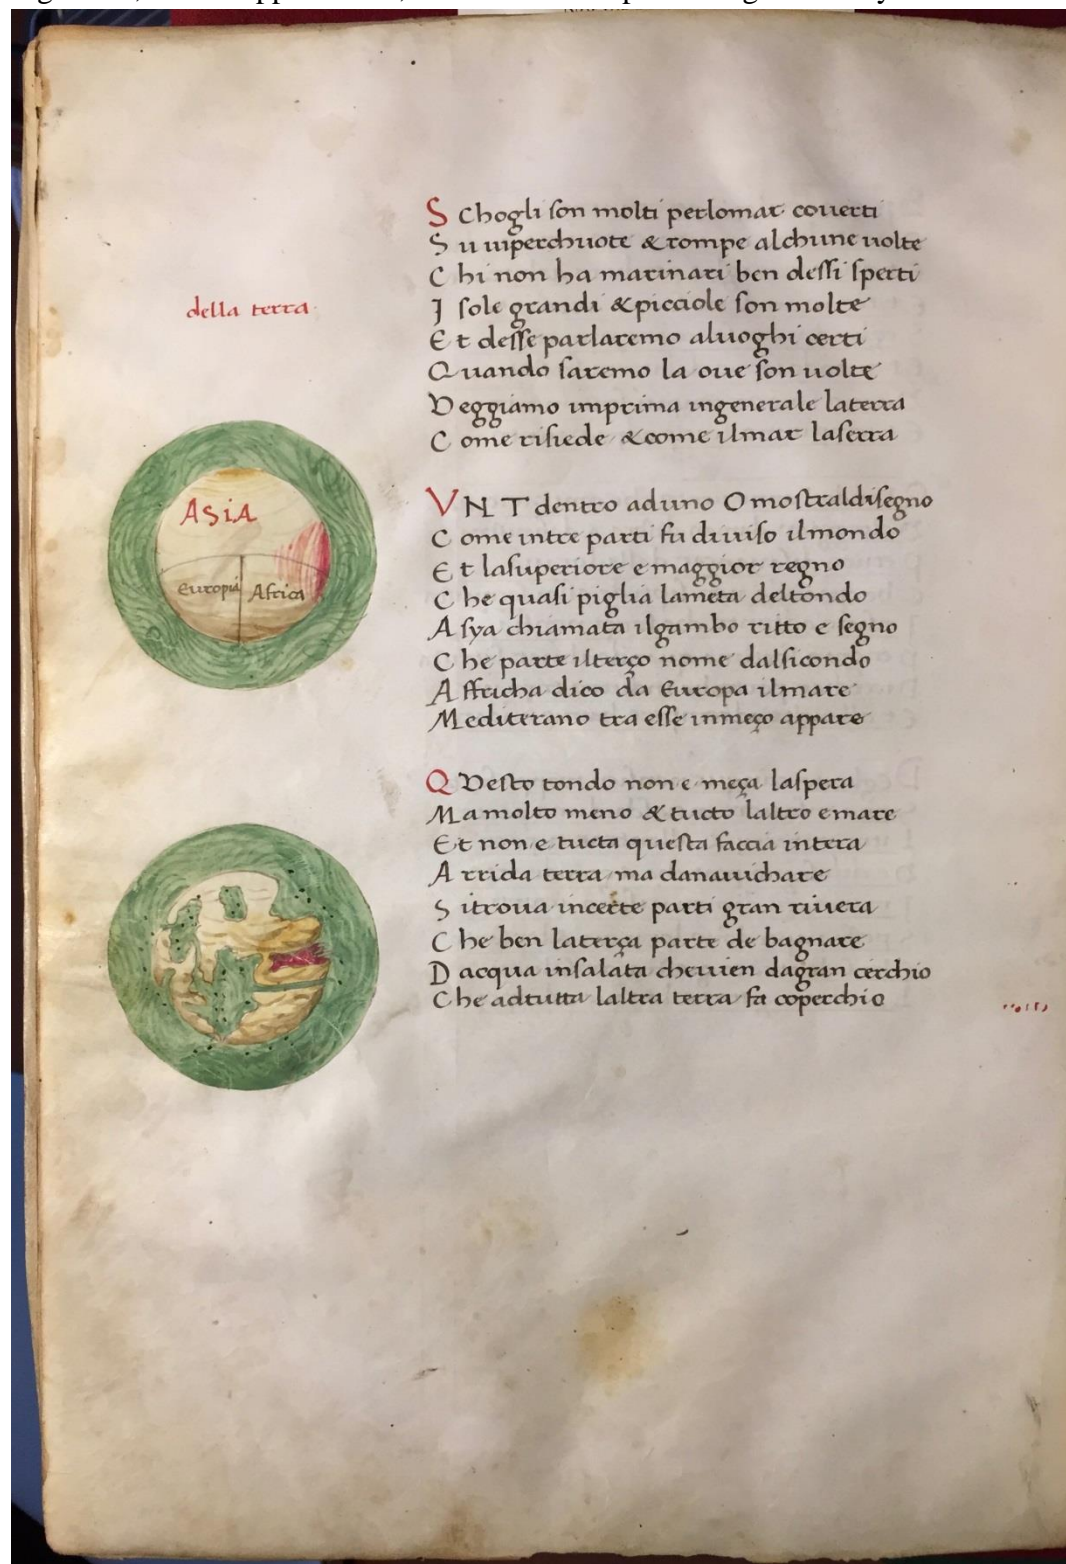 della terra
S chogli son molti perlomar couerti
S u uiperchuote & rompe alchune uolte
C hi non ha marinari ben dessi sperti
I sole grandi & picciole son molte
E t desse parlaremo aluoghi certi
Q uando saremo la oue son uolte
V eggiamo imprima ingenerale laterra
C ome risiede & come ilmar laserra
ASIA
Europa Africa
V N T dentro aduno O mostraldisegno
C ome intre parti fu diuiso ilmondo
E t lasuperiore e maggior regno
C he quasi piglia lameta deltondo
A sya chiamata ilgambo ritto e segno
C he parte ilterço nome dalsicondo
A ffricha dico da Europa ilmare
M editerano tra esse inmeço appare
Q Vesto tondo non e meça laspera
M a molto meno & tucto laltro e mare
E t non e tucta questa faccia intera
A rrida terra ma danauichare
S itroua incerte parti gran riuera
C he ben laterça parte de bagnare
D acqua insalata cheuien dagran cerchio
C he adtutta laltra terra fa coperchio